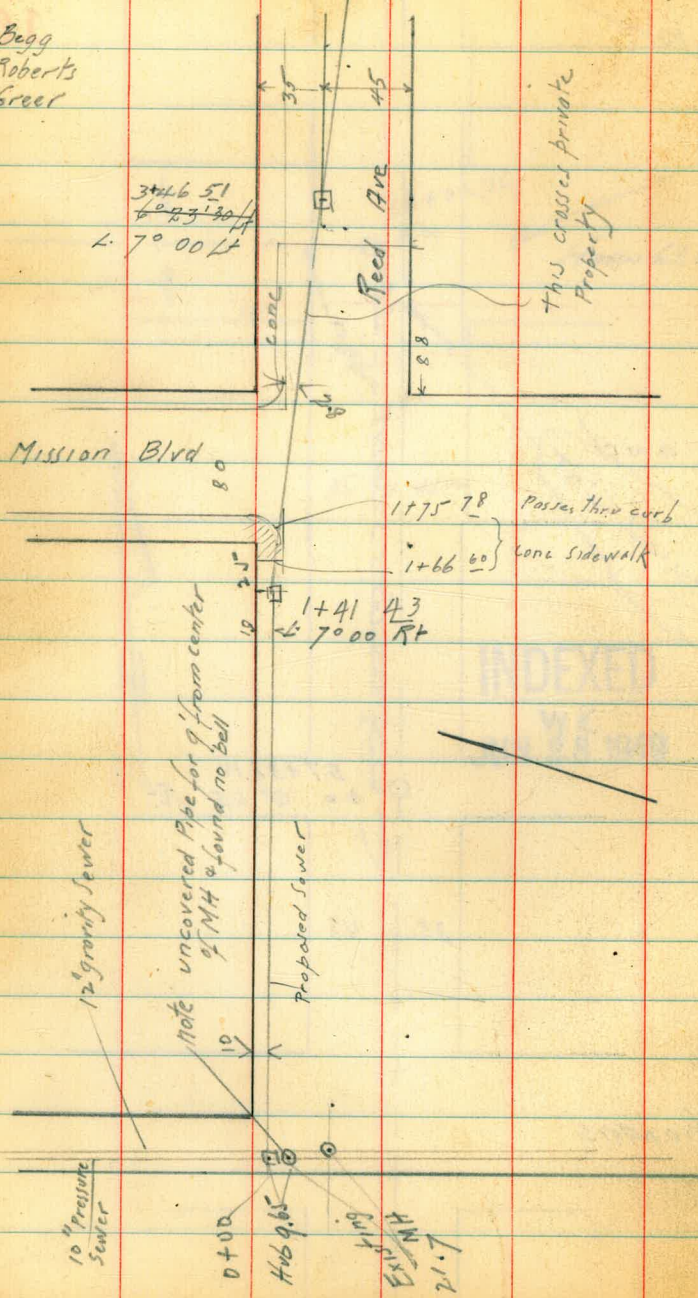 Begg
Roberts
Greer
35
45
3+46 51
6° 23' 30" Lt
∠ 7° 00 Lt
Reed Ave
this crosses private
Property
conc
88
Mission Blvd
80
1+75 78 Passes thru curb
1+66 60 conc sidewalk
25
10
1+41 43
∠ 7° 00 Rt
INDEXED
note uncovered Pipe for 9' from center
of MH & found no bell
Proposed Sewer
12" gravity Sewer
10
10" Pressure
Sewer
0+00
Hub 9.65
Exis MH
21.7